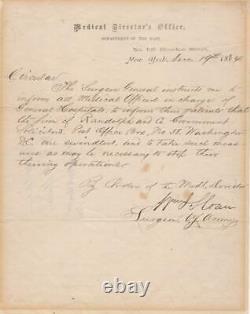 Medical Director's Office,
DEPARTMENT OF THE EAST,
New York, 19th 1864
Circular
The Surgeon General instructs me to
inform all Medical Officers in charge of
General Hospitals to inform their patients that
the firm of Randolph and Co Government
Solicitors, Post Office Box, No 51 Washington
DC are swindlers, and to take such meas
ures as may be necessary to stop their
thieving operations
By Order of Medl. Director
Wm J. Sloan
Surgeon U.S. Army